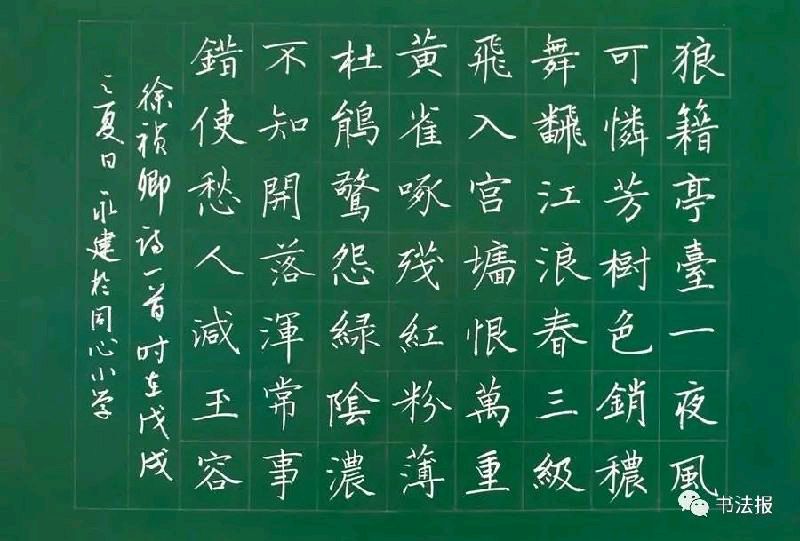 狼籍亭臺一夜風
可憐芳樹色銷穠
舞飜江浪春三級
飛入宫墻恨萬重
黃雀啄殘紅粉薄
杜鵑驚怨綠陰濃
不知開落渾常事
錯使愁人減玉容
徐禎卿詩一首时在戊戌
之夏日永建於同心小学
书法报